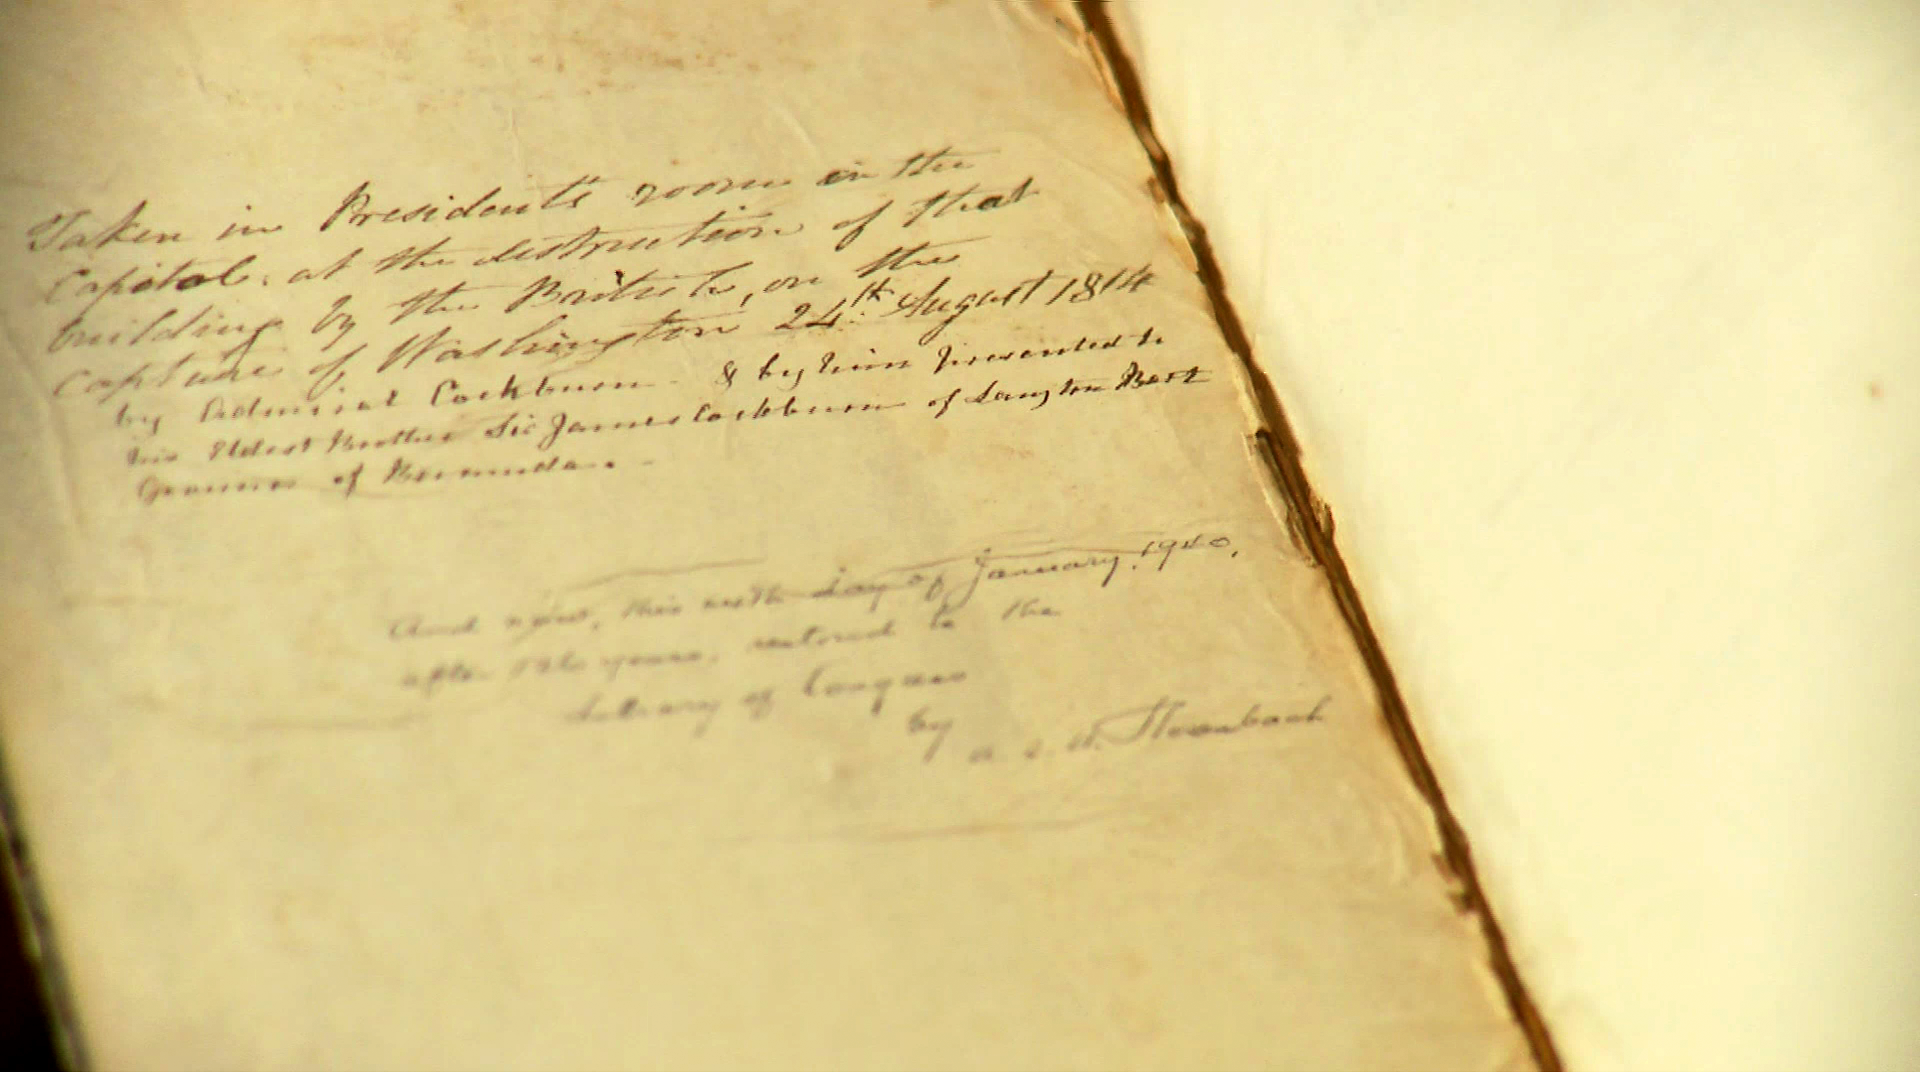 Taken in President's room in the
Capitol, at the destruction of that
building by the British, on the
capture of Washington 24th. August 1814
by Admiral Cockburn & by him presented to
his Eldest Brother Sir James Cockburn of Langton Bart
Governor of Bermuda.
And now, this sixth day of January, 1940,
after 126 years, restored to the
Library of Congress
by
A. S. W. Rosenbach